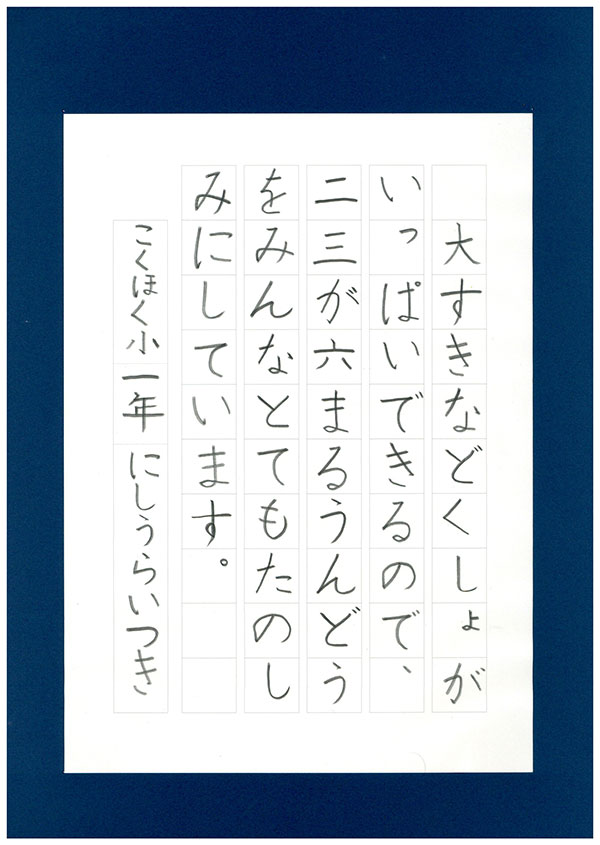 大すきなどくしょが
いっぱいできるので、
二三が六まるうんどう
をみんなとてもたのし
みにしています。
こくほく小一年 にしうらいつき